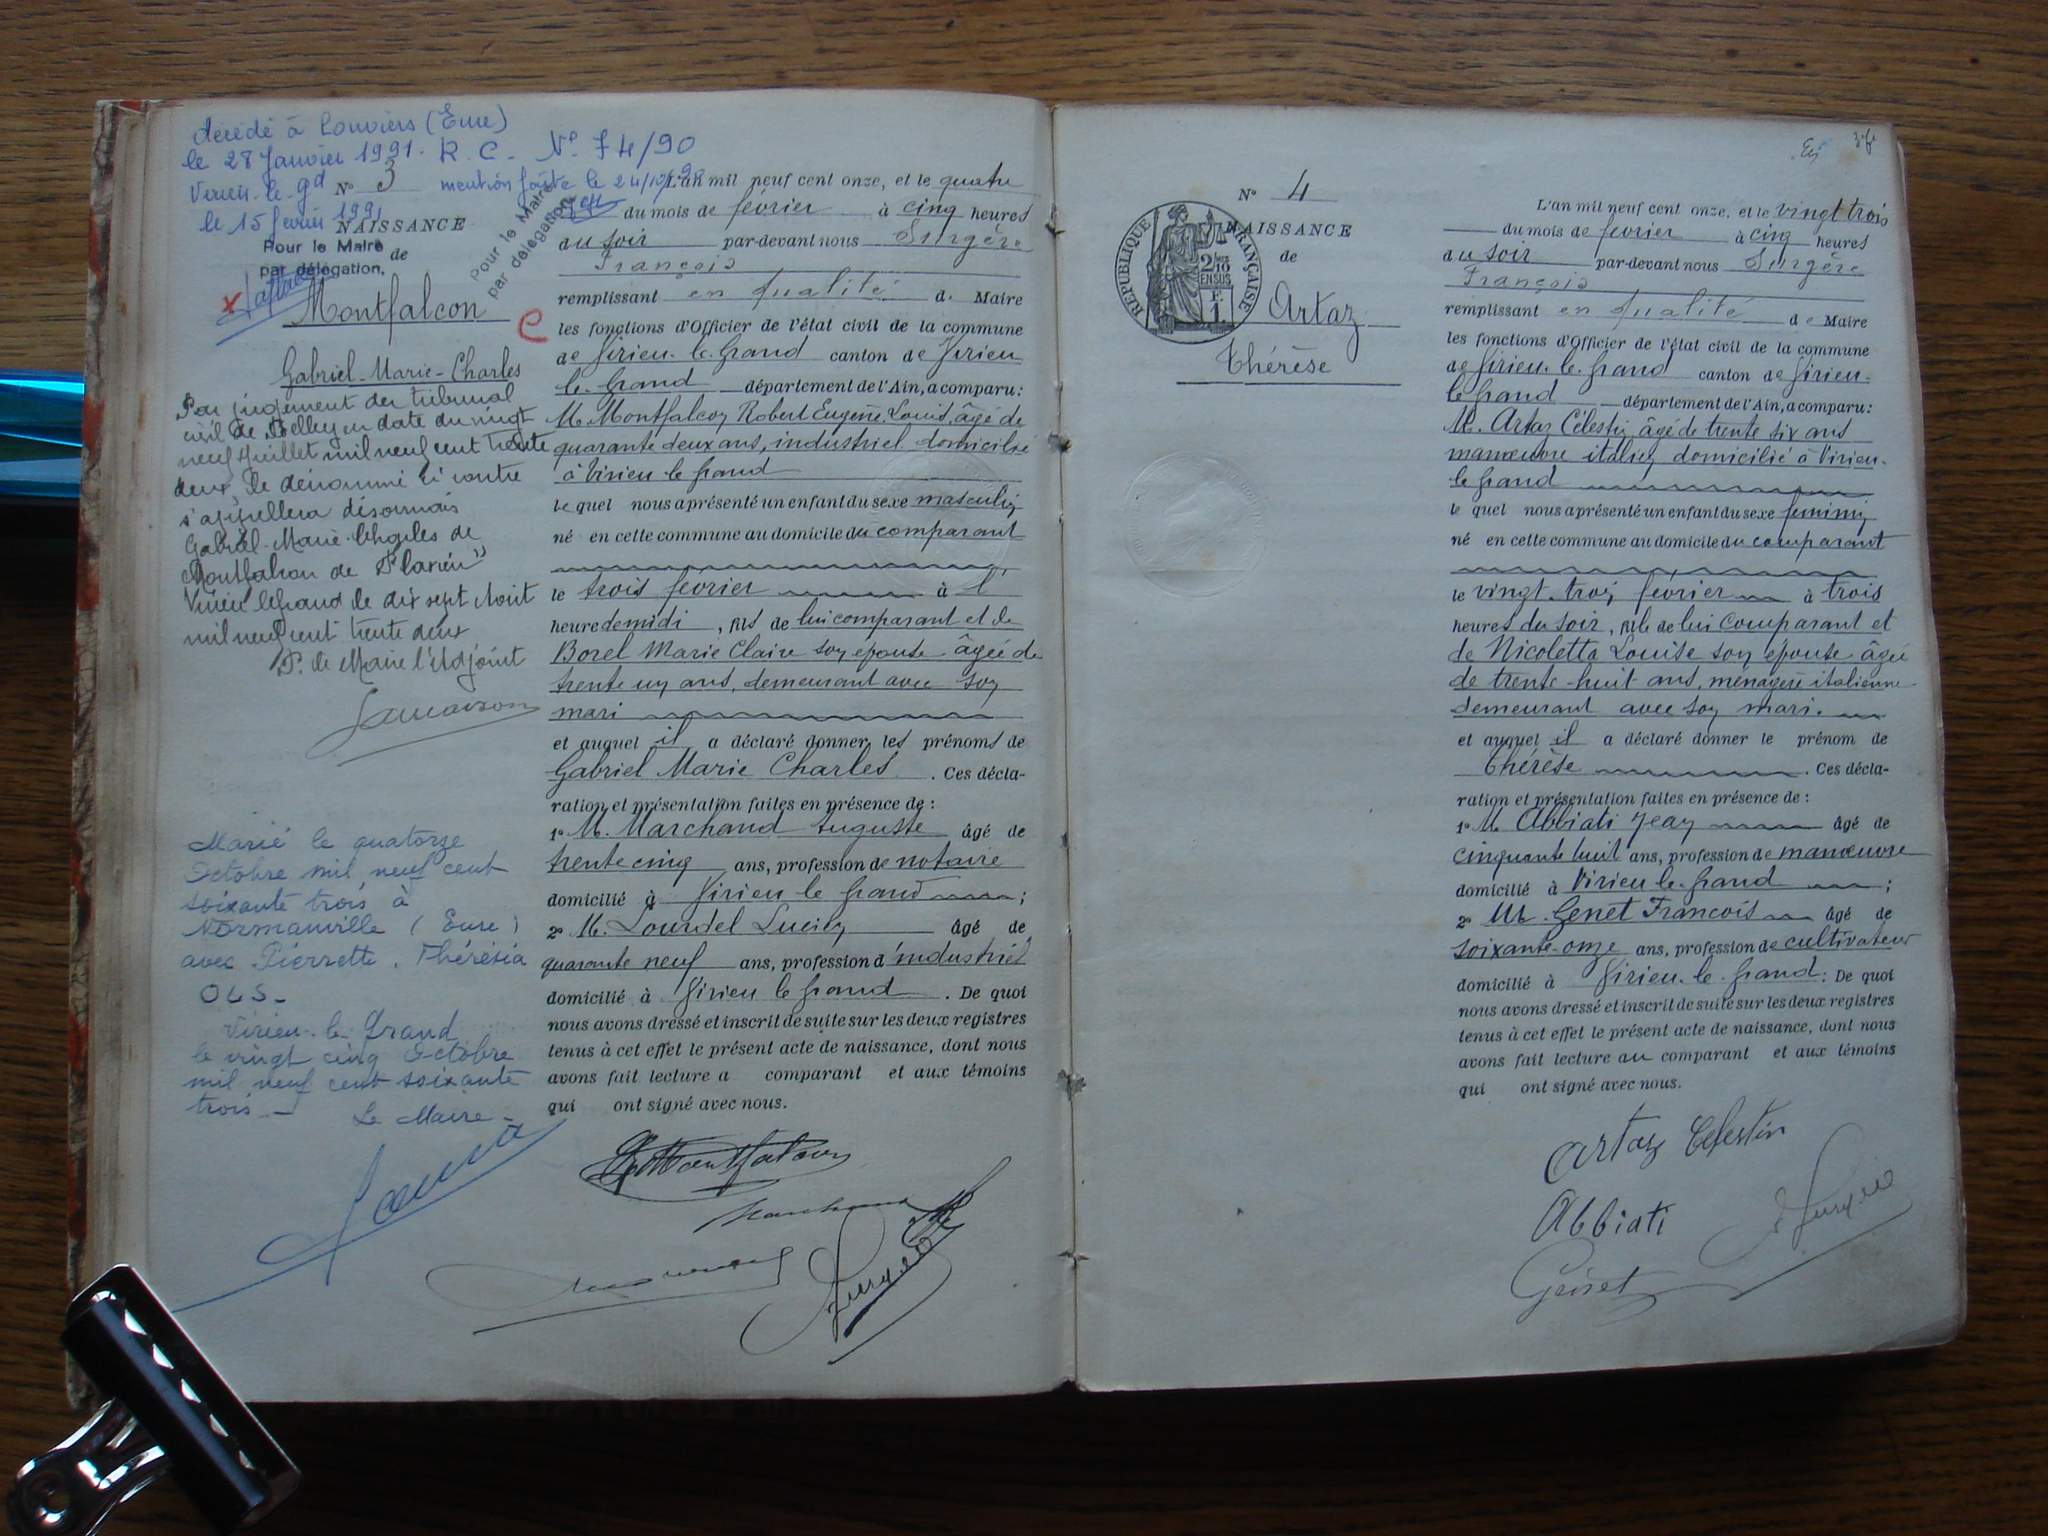 décédé à Louviers (Eure)
le 28 Janvier 1991. R.C. N° 74/90
Virieu-le-gd mention faite le 24/10/90
le 15 février 1991
Pour le Maire
par délégation,
Pour le Maire
par délégation
N° 3
NAISSANCE
de
Montfalcon
Gabriel-Marie-Charles
Par jugement du tribunal
civil de Belley en date du vingt
neuf Juillet mil neuf cent trente
deux, le dénommé ci contre
s'appellera désormais
Gabriel-Marie-Charles de
Montfalcon de Flaxieu"
Virieu legrand le dix sept Aout
mil neuf cent trente deux
P. le Maire l'Adjoint
Marié le quatorze
Octobre mil neuf cent
soixante trois à
Normanville (Eure)
avec Pierrette, Thérésia
OLS_
Virieu-le-Grand
le vingt cinq Octobre
mil neuf cent soixante
trois_ Le Maire_
L'an mil neuf cent onze, et le quatre
du mois de février à cinq heures
du soir par-devant nous Surgère
François
remplissant en qualité de Maire
les fonctions d'Officier de l'état civil de la commune
de Virieu-le-Grand canton de Virieu
le-Grand département de l'Ain, a comparu:
M. Montfalcon Robert Eugène Louis, âgé de
quarante deux ans, industriel domicilié
à Virieu le Grand
lequel nous a présenté un enfant du sexe masculin
né en cette commune au domicile du comparant
le trois février à l'
heure de midi, fils de lui comparant et de
Borel Marie Claire son épouse âgée de
trente un ans, demeurant avec son
mari
et auquel il a déclaré donner les prénoms de
Gabriel Marie Charles. Ces décla-
ration et présentation faites en présence de:
1° M. Marchand Auguste âgé de
trente cinq ans, profession de notaire
domicilié à Virieu le Grand;
2° M. Lourdel Lucien âgé de
quarante neuf ans, profession d'industriel
domicilié à Virieu le Grand. De quoi
nous avons dressé et inscrit de suite sur les deux registres
tenus à cet effet le présent acte de naissance, dont nous
avons fait lecture a comparant et aux témoins
qui ont signé avec nous.
Marchand
Surgère
N° 4
NAISSANCE
de
RÉPUBLIQUE FRANÇAISE
2/10 EN SUS
Artaz
Thérèse
L'an mil neuf cent onze, et le vingt trois
du mois de février à cinq heures
du soir par-devant nous Surgère
François
remplissant en qualité de Maire
les fonctions d'Officier de l'état civil de la commune
de Virieu-le-Grand canton de Virieu-
le Grand département de l'Ain, a comparu:
M. Artaz Célestin âgé de trente six ans
manœuvre italien domicilié à Virieu-
le Grand
lequel nous a présenté un enfant du sexe féminin
né en cette commune au domicile du comparant
le vingt-trois février à trois
heures du soir, fille de lui comparant et
de Nicoletta Louise son épouse âgée
de trente-huit ans, ménagère italienne
demeurant avec son mari.
et auquel il a déclaré donner le prénom de
Thérèse. Ces décla-
ration et présentation faites en présence de:
1° M Abbiati Jean âgé de
cinquante huit ans, profession de manœuvre
domicilié à Virieu-le-Grand;
2° M. Genet François âgé de
soixante-onze ans, profession de cultivateur
domicilié à Virieu-le-Grand: De quoi
nous avons dressé et inscrit de suite sur les deux registres
tenus à cet effet le présent acte de naissance, dont nous
avons fait lecture au comparant et aux témoins
qui ont signé avec nous.
Artaz Celestin
Abbiati
Surgère